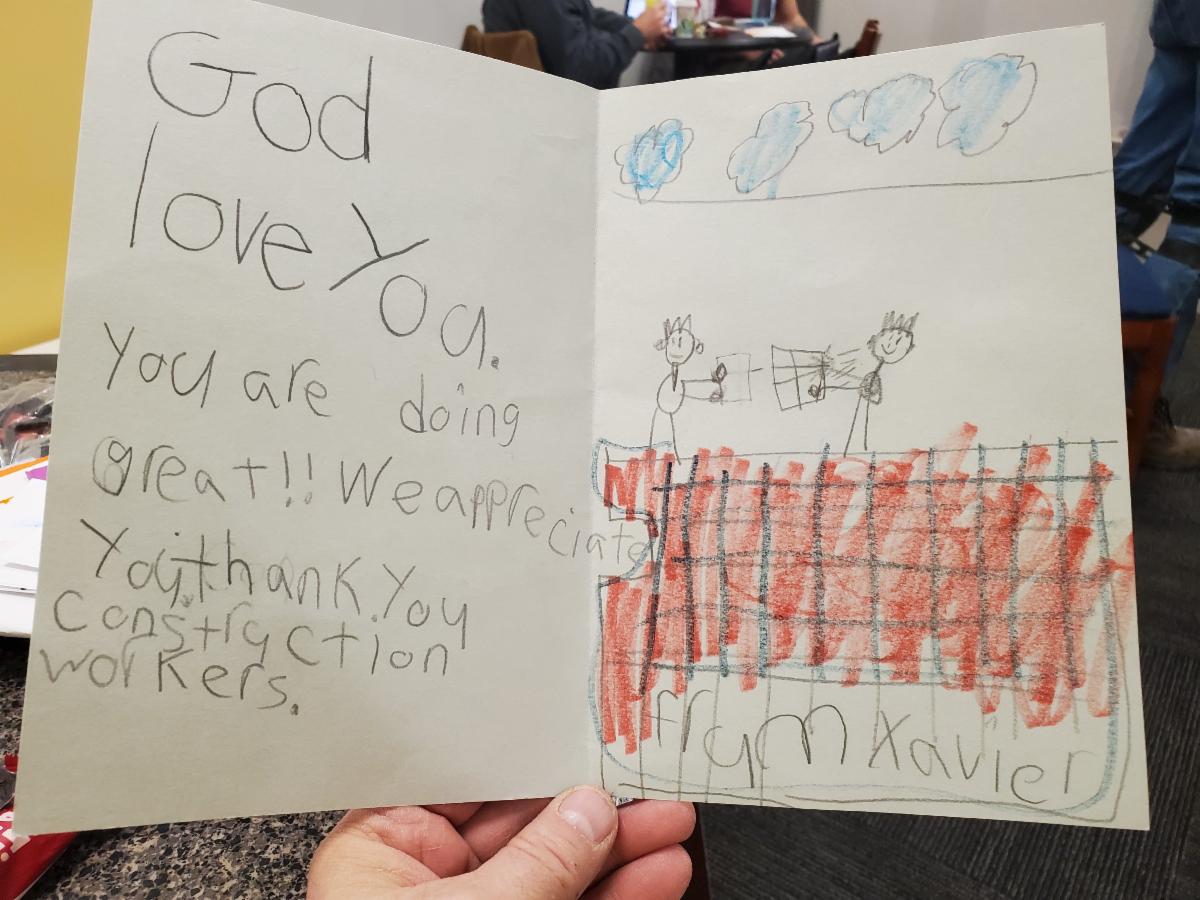 God
love You.
You are doing
great!! We appreciate
You, thank You
construction
workers.
frum Xavier